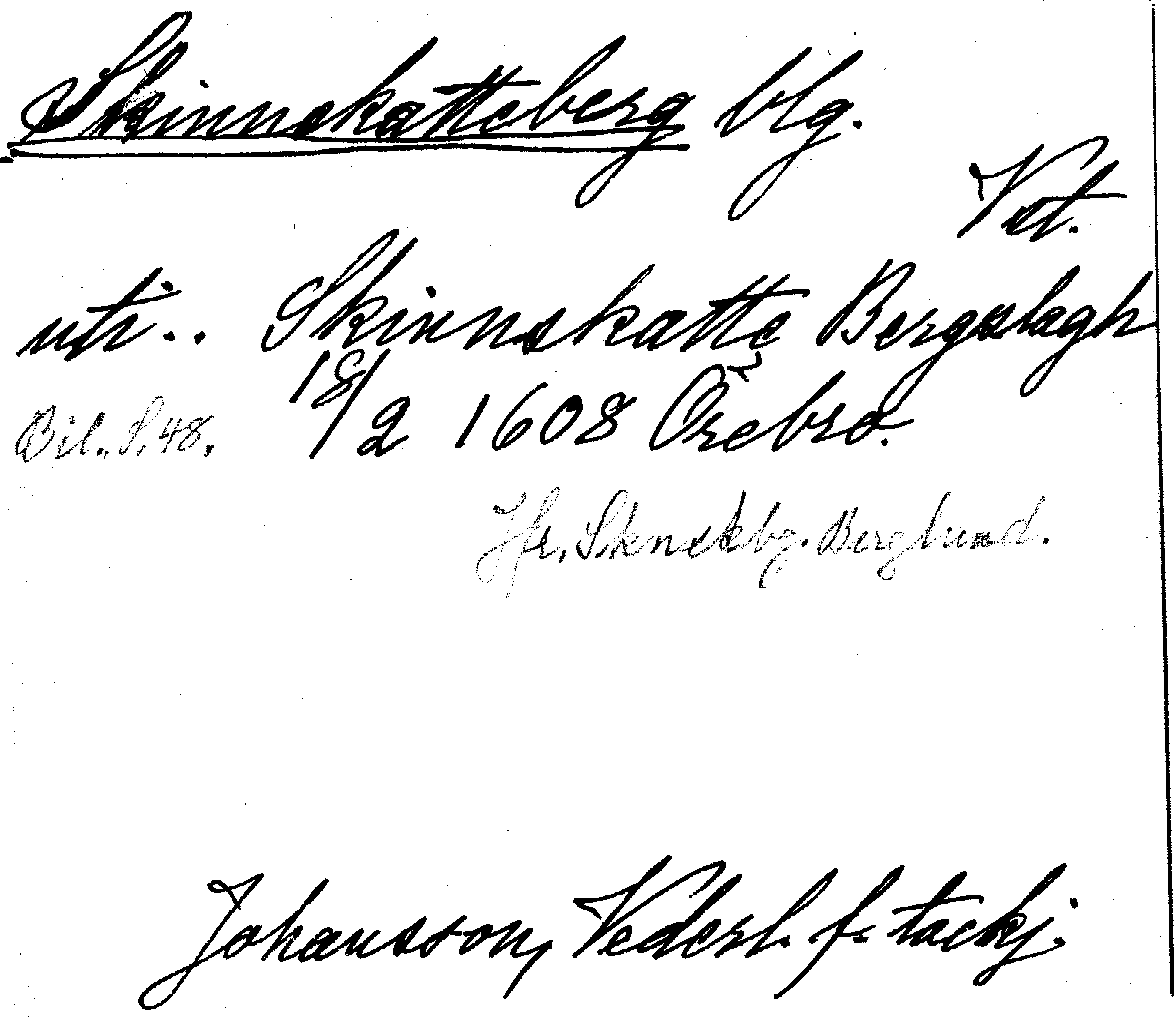 Skinnskatteberg blg.
Vstm.
uti.. Skinnskatte Bergslagh
18/2 1608 Örebro.
Bil. S. 48.
Jfr. Sknskbg. Berglund.
Johansson, Vederl. f. tackj.